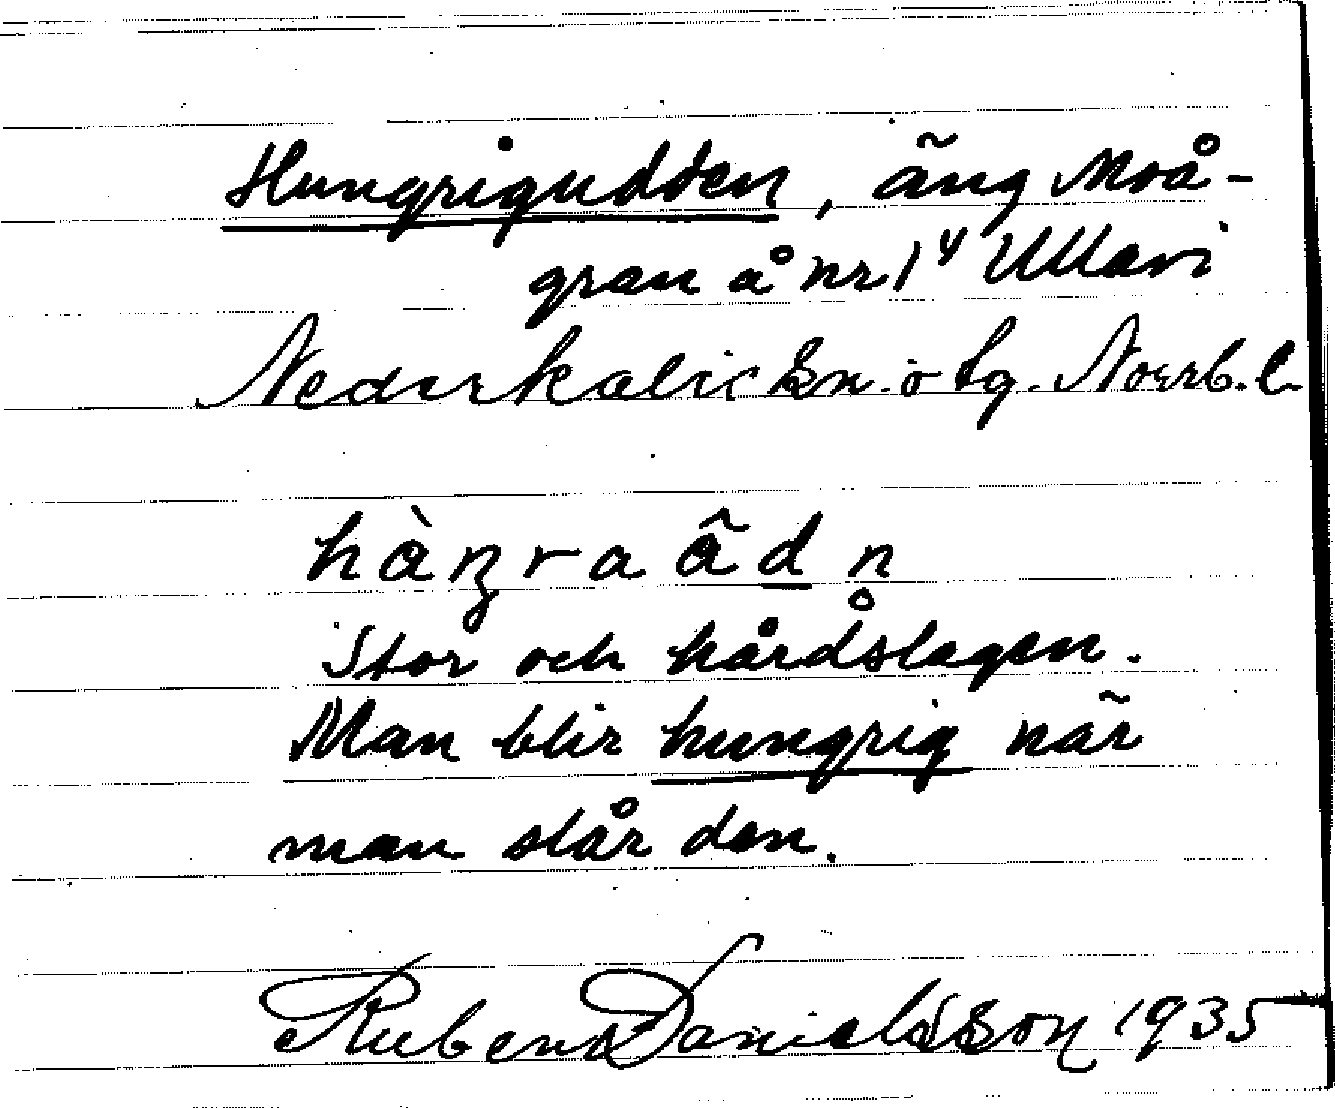 Hungrigudden, äng Moå-
gran å nr 1⁴ Ullavi
Nederkalix sn. o tg. Norrb. l.
hàŋraâdn
Stor och hårdslagen.
Man blir hungrig när
man slår den.
Ruben Danielsson 1935